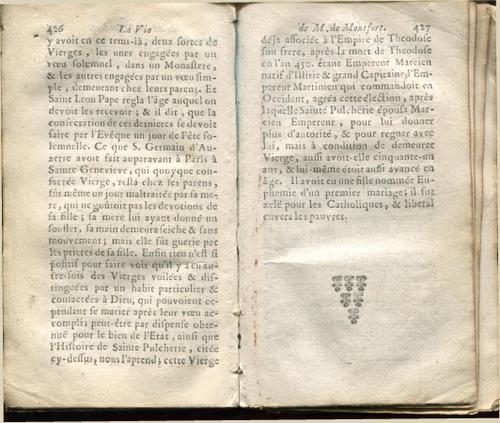 426 La Vie
y avoit en ce tems-là, deux sortes de
Vierges, les unes engagées par un
vœu solemnel, dans un Monastere,
& les autres engagées par vœu sim-
ple, demeurant chez leurs parens. Et
Saint Leon Pape regla l'âge auquel on
devoit les recevoir; & il dit, que la
consécration de ces dernieres se devoit
faire par l'Evêque un jour de Fête so-
lemnelle. Ce que S. Germain d'Au-
xerre avoit fait auparavant à Paris à
Sainte Genevieve, qui quoyque con-
sacrée Vierge, resta chez ses parens,
fut même un jour maltraitée par sa me-
re, qui ne goûtoit pas les devotions de
sa fille; sa mere lui ayant donné un
souflet, sa main demeura seiche & sans
mouvement; mais elle fut guerie par
les prieres de sa fille. Enfin rien n'est si
positif pour faire voir qu'il y a eu au-
tre-fois des Vierges voilées & dis-
tinguées par un habit particulier &
consacrées à Dieu, qui pouvoient ce-
pendant se marier après leur vœu ac-
compli; peut-être par dispense obte-
nuë pour le bien de l'Etat, ainsi que
l'Histoire de Sainte Pulcherie, citée
cy-dessus, nous l'aprend; cette Vierge
de M. de Montfort. 427
déja associée à l'Empire de Theodose
son frere, après la mort de Theodose
en l'an 450. étant Empereur Marcien
natif d'Illirie & grand Capitaine, l'Em-
pereur Martinien qui commandoit en
Occident, agréa cette élection, après
laquelle Sainte Pulcherie épousa Mar-
cien Empereur, pour lui donner
plus d'autorité, & pour regner avec
lui, mais à condition de demeurer
Vierge, aussi avoit-elle cinquante-un
ans, & lui-même étoit aussi avancé en
âge. Il avoit eu une fille nommée Eu-
phemie d'un premier mariage; il fut
zelé pour les Catholiques, & liberal
envers les pauvres.